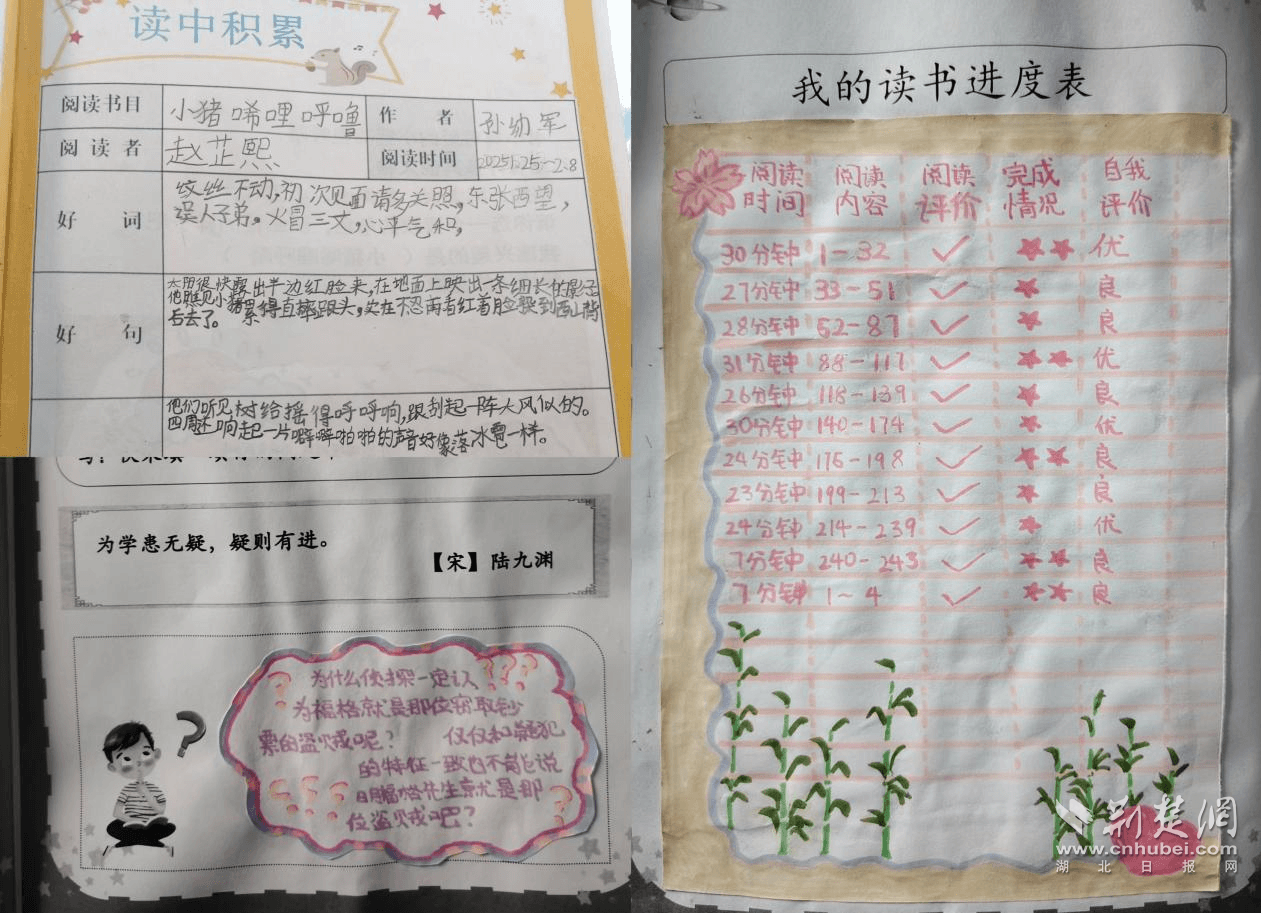 读中积累
阅读书目 小猪唏哩呼噜 作者 孙幼军
阅读者 赵芷熙 阅读时间 2025.1.25-2.8
好词 纹丝不动,初次见面请多关照,东张西望,
误人子弟。火冒三丈,心平气和,
好句 太阳很快露出半边红脸来,在地面上映出一条细长的影子
他瞧见小猪累得直摔跟头,实在不忍再看红着脸躲到西山背
后去了。
他们听见树给摇得呼呼响,跟刮起一阵大风似的。
四周还响起一片噼噼啪啪的声音好像落冰雹一样。
为学患无疑，疑则有进。
【宋】陆九渊
为什么侦探一定认
为福格就是那位窃取钞
票的盗贼呢? 仅仅和嫌犯
的特征一致也不能说
明福格先生就是那
位盗贼吧?
我的读书进度表
阅读时间 阅读内容 阅读评价 完成情况 自我评价
30分钟 1-32 ✓ ★★ 优
27分钟 33-51 ✓ ★ 良
28分钟 52-87 ✓ ★ 良
31分钟 88-117 ✓ ★★ 优
26分钟 118-139 ✓ ★ 良
30分钟 140-174 ✓ ★ 优
24分钟 175-198 ✓ ★★ 良
23分钟 199-213 ✓ ★ 良
24分钟 214-239 ✓ ★ 优
7分钟 240-243 ✓ ★★ 良
7分钟 1~4 ✓ ★★ 良
荆楚网
www.cnhubei.com
湖北日报网